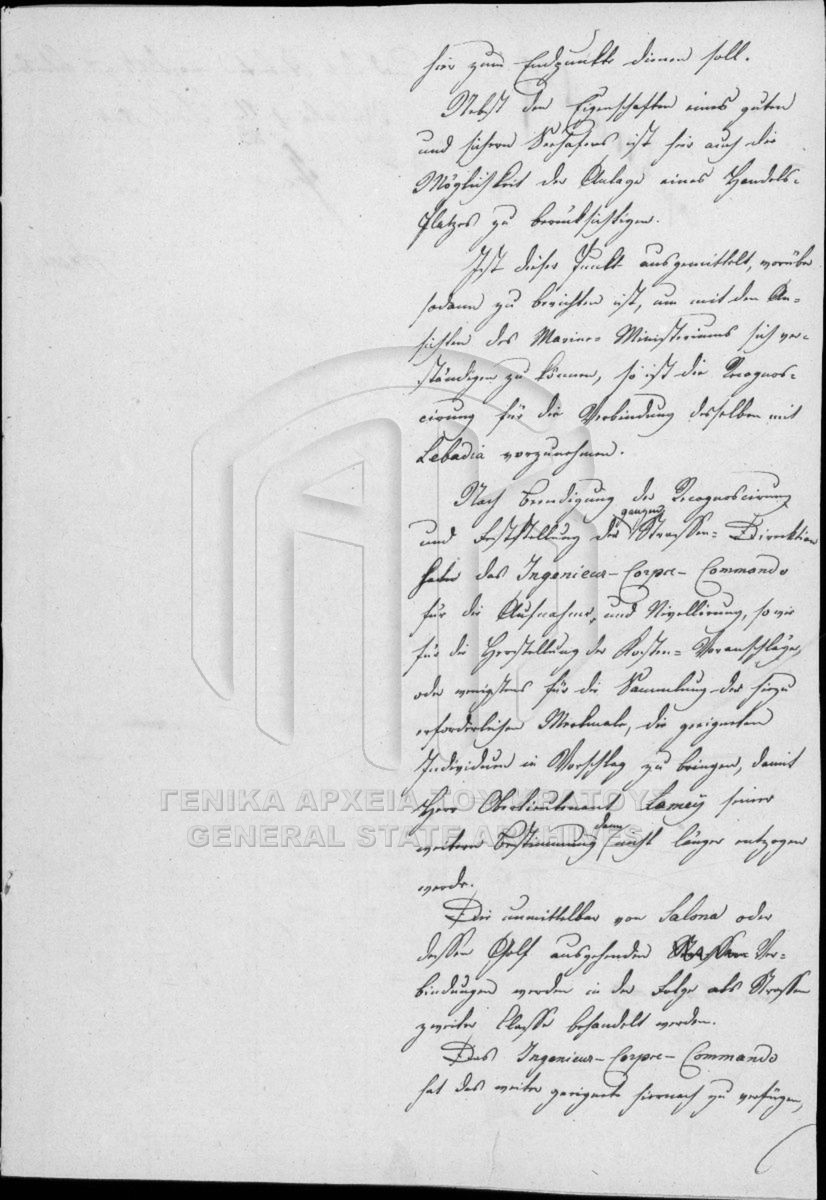 hier zum Endpunkte dienen soll.
Nebst den Eigenschaften eines guten
und sichern Seehafens ist hier auch die
Möglichkeit der Anlage eines Handels-
platzes zu berücksichtigen.
Ist dieser Punkt ausgemittelt, worüber
sodann zu berichten ist, um mit den An-
sichten des Marine-Ministeriums sich ver-
ständigen zu können, so ist die Recognos-
cirung für die Verbindung desselben mit
Lebadia vorzunehmen.
Nach Beendigung der Recognoscirung
und Feststellung der ganzen Strassen-Direktion
hat das Ingenieur-Corps-Commando
für die Aufnahme, und Nivellirung, so wie
für die Herstellung der Kosten-Voranschläge,
oder wenigstens für die Sammlung der hiezu
erforderlichen Merkmale, die geeigneten
Individuen in Vorschlag zu bringen, damit
Herr Oberlieutenant Lamey seiner
weitern Bestimmung dann nicht länger entzogen
werde.
Die unmittelbar von Salona oder
dessen Golf ausgehenden Ver-
bindungen werden in der Folge als Strassen
zweiter Classe behandelt werden.
Das Ingenieur-Corps-Commando
hat das weiter geeignete hiernach zu verfügen,
ΓΕΝΙΚΑ ΑΡΧΕΙΑ ΤΟΥ ΚΡΑΤΟΥΣ
GENERAL STATE ARCHIVES